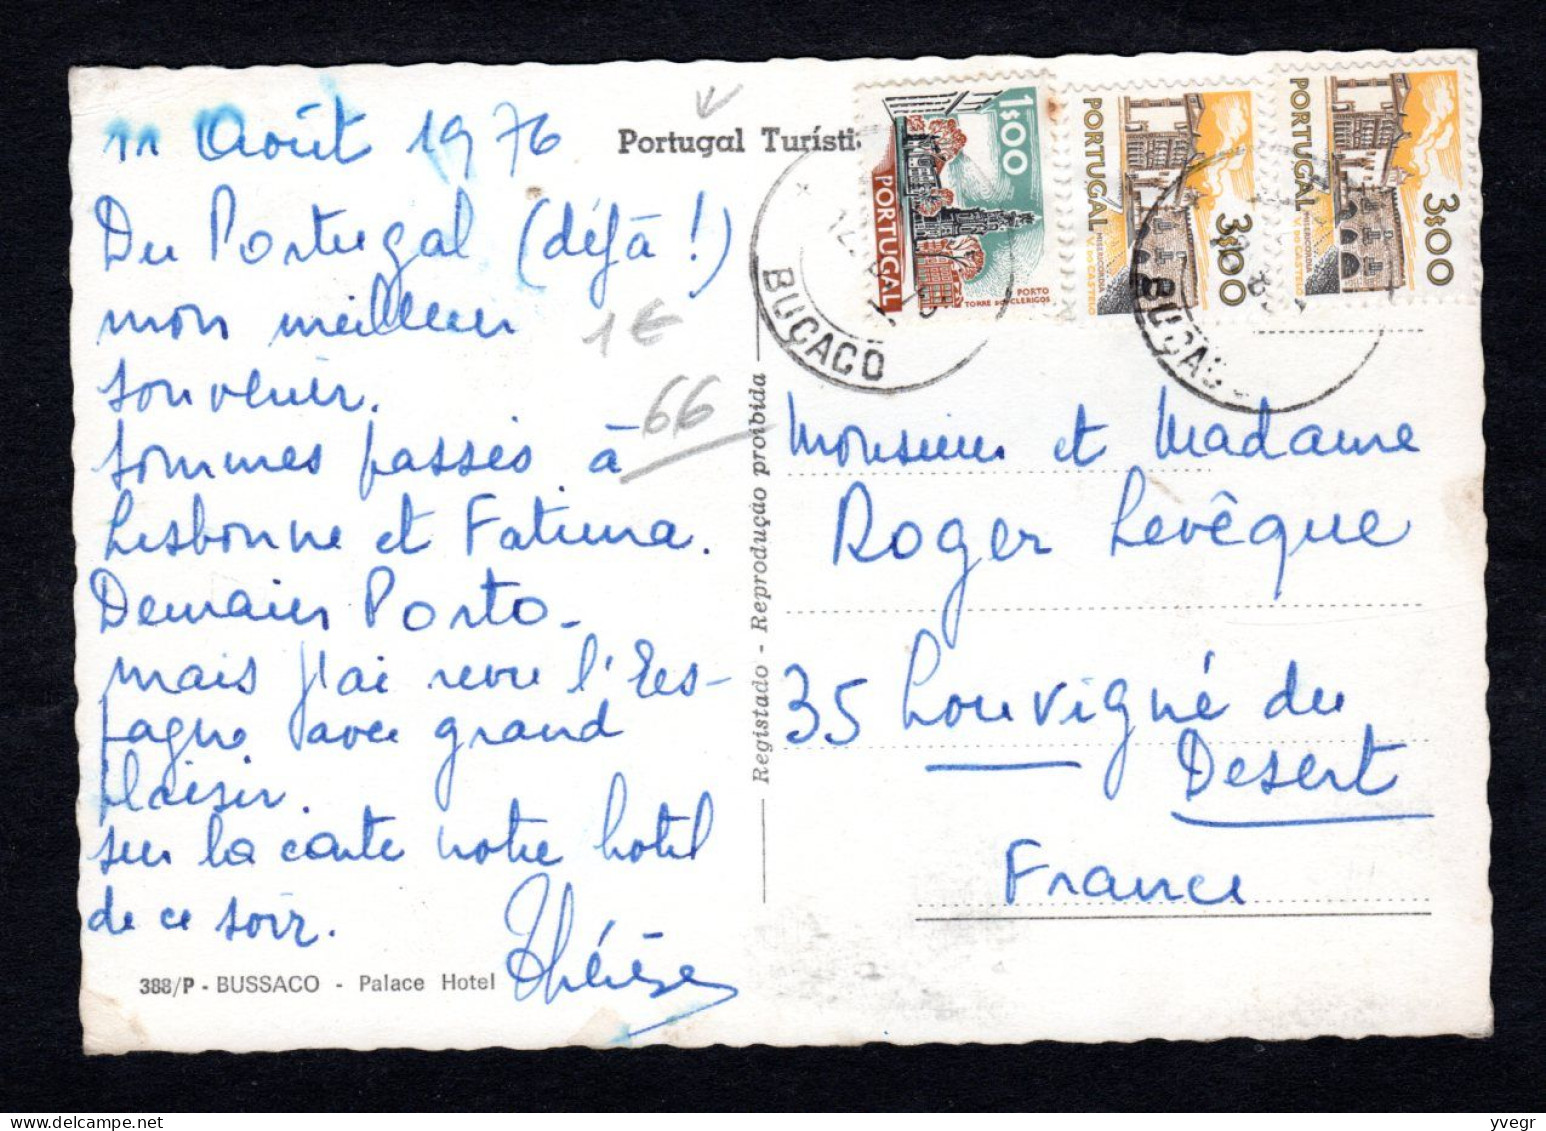 11 Août 1976
Du Portugal (déjà !)
mon meilleur
souvenir.
sommes passés à
Lisbonne et Fatima.
Demain Porto -
mais j'ai revu l'Es-
pagne avec grand
plaisir.
sur la carte notre hotel
de ce soir.
Thérèse
388/P - BUSSACO - Palace Hotel
1€
66
Portugal Turísti
Registado - Reprodução proibida
1$00
PORTUGAL
PORTO
TORRE DOS CLERIGOS
PORTUGAL
3$00
MISERICORDIA
V. DO CASTELO
PORTUGAL
3$00
MISERICORDIA
V. DO CASTELO
BUÇACO
BUÇACO
Monsieur et Madame
Roger Levêque
35 Louvigné du
Desert
France
yvegr © Delcampe.net